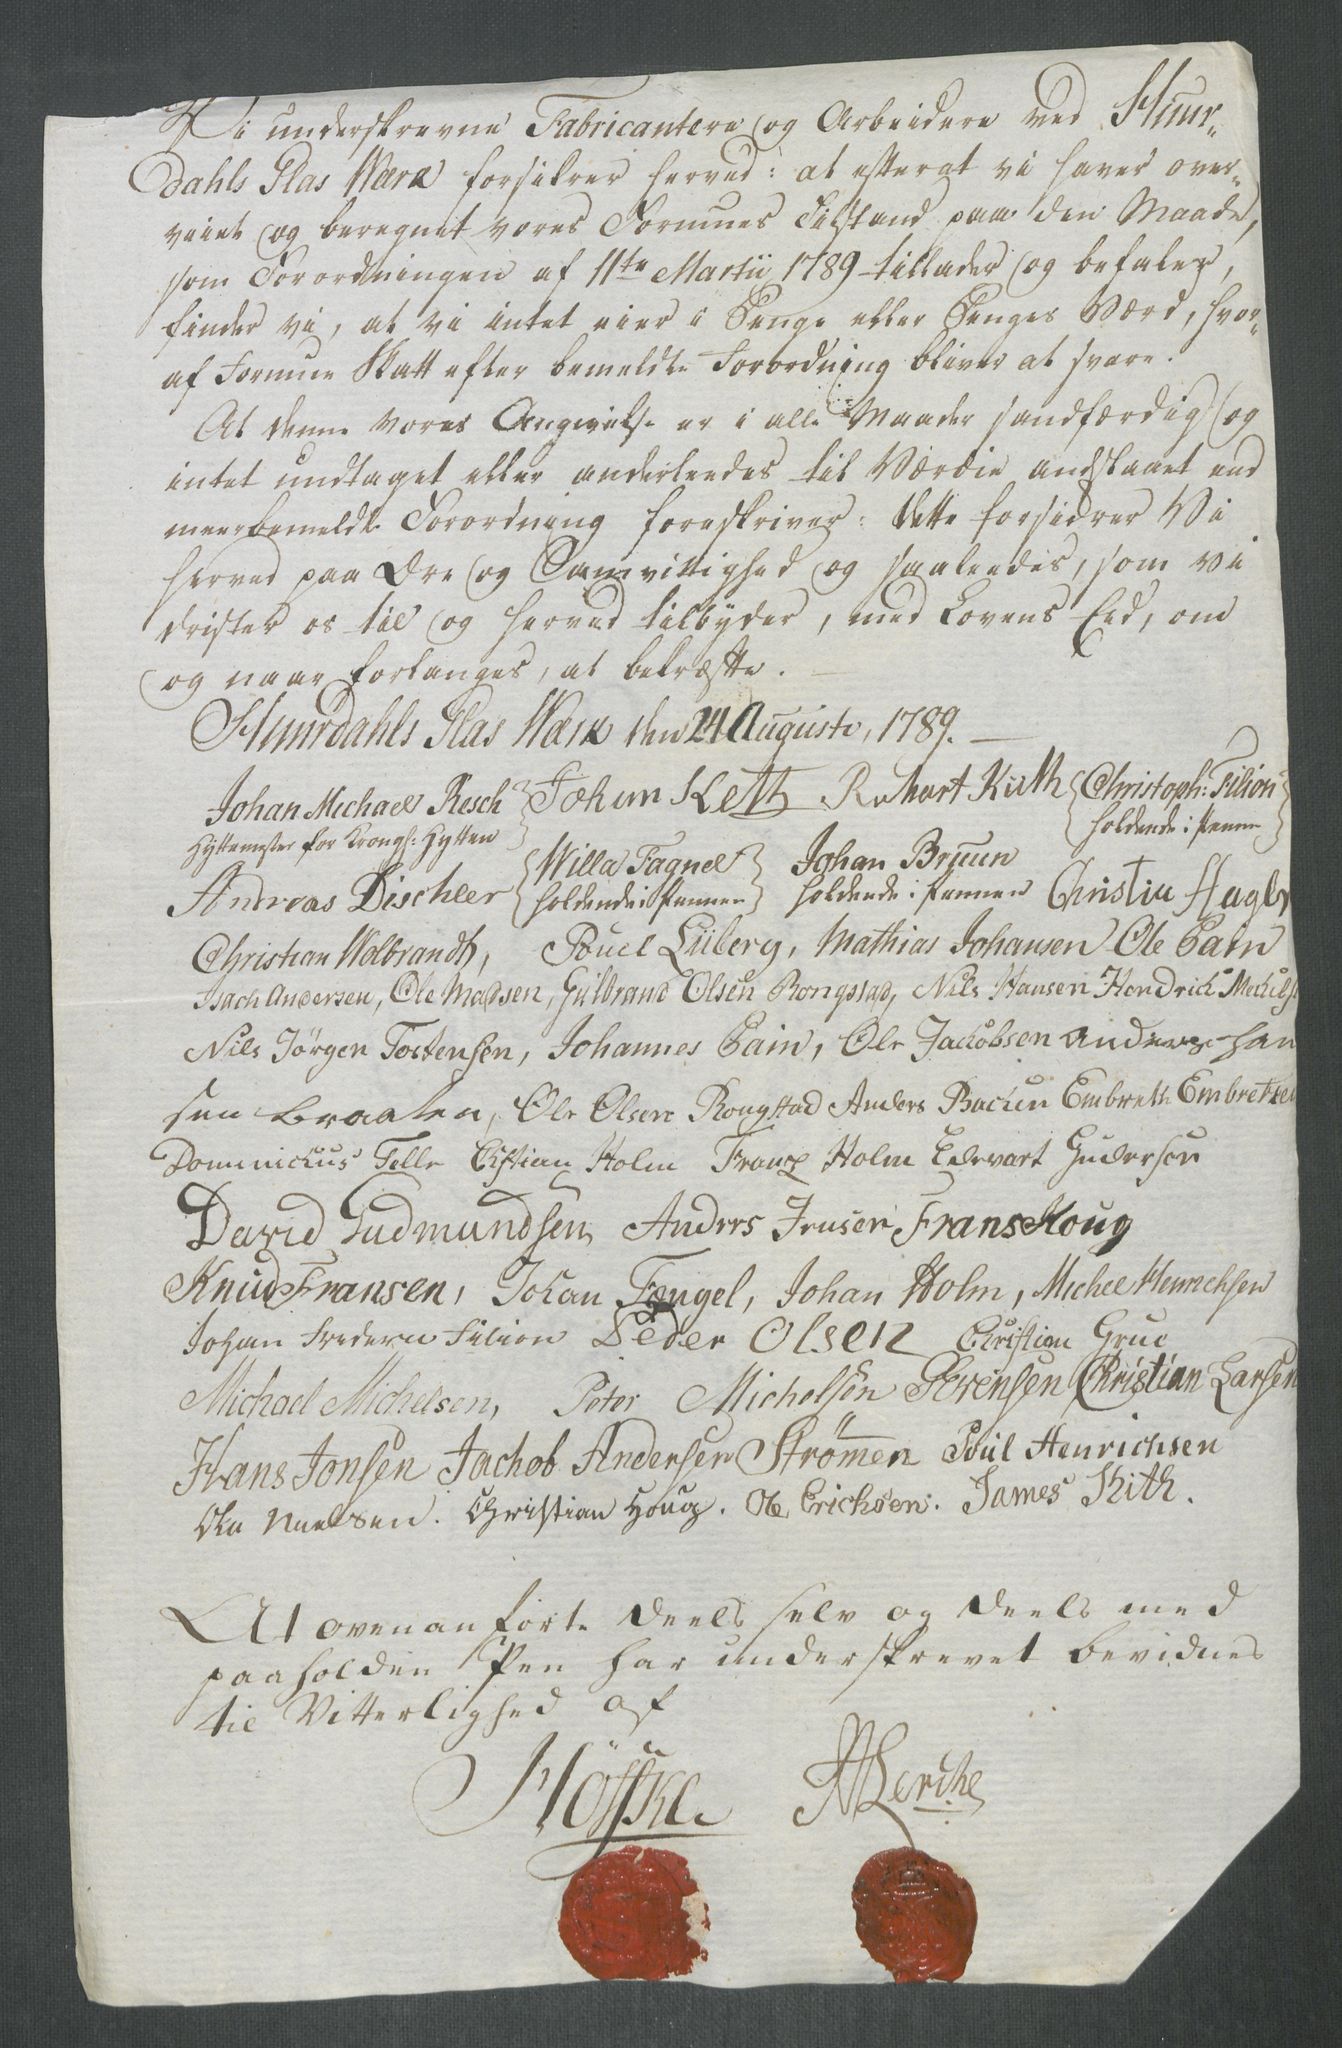 Vi underskrevne Fabricantere og Arbeidere ved Huur-
dahls Glas Værk forsikrer herved: at efterat vi haver over-
veiet og beregnet vores Formues Tilstand paa den Maade,
som Forordningen af 11te Martii 1789 tillader og befaler,
finder vi, at vi intet eier i Penge eller Penges Værd, hvor-
af Formue Skatt efter bemeldte Forordning bliver at svare.
At denne vores Angivelse er i alle Maader sandfærdig og
intet undtaget eller anderleedes til Værdie andslaaet end
meerbemeldte Forordning foreskriver: dette forsickrer Vi
herved paa Ære og Samvittighed og saaleedes, som Vi
drister os til og herved tilbyder, med Lovens Eed, om
og naar forlanges, at bekræfte.
Huurdahls Glas Værk den 24 Augusti, 1789.
Johan Michael Resch Johan Kett Robart Kith Christoph: Filion
Hyttemester for Krongl: Hytten holdende i Pennen
Andreas Discher Willa Fagnel Johan Bruun Christia Hagler
holdende i Pennen holdende i Pennen
Christian Wolbrandt, Pouel Lüberg, Mathias Johansen Ole Cain
Isach Andersen, Ole Madsen, Gulbrand Olsen Rongstad, Nils Hansen Hendrick Mickels
Nils Jörgen Tostensen, Johannes Cain, Ole Jackobsen anders han
sen braaten, Ole Olsen Rongstad Anders Backen Embreth Embretsen
Dominickus Felle Cristian Holm Franz Holm Edevart Gudersen
David Gudmundsen, Anders Jensen Frans Houg
Knud Fransen, Johan Fængel, Johan Holm, Michel Henrichsen
Johan Frederic Filion Peder Olsen Christian Grue
Michael Michelsen, Peter Michelsen Sørensen Christian Larsen
Hans Jonsen Jachob Andersen Strömen Poul Henrichsen
Ole Nielsen. Christian Houg. Ole Erichsen. James Kith.
At ovenanførte deels selv og deels med
paaholden Pen har underskrevet bevidnes
til Vitterlighed af
Höffke Lerche